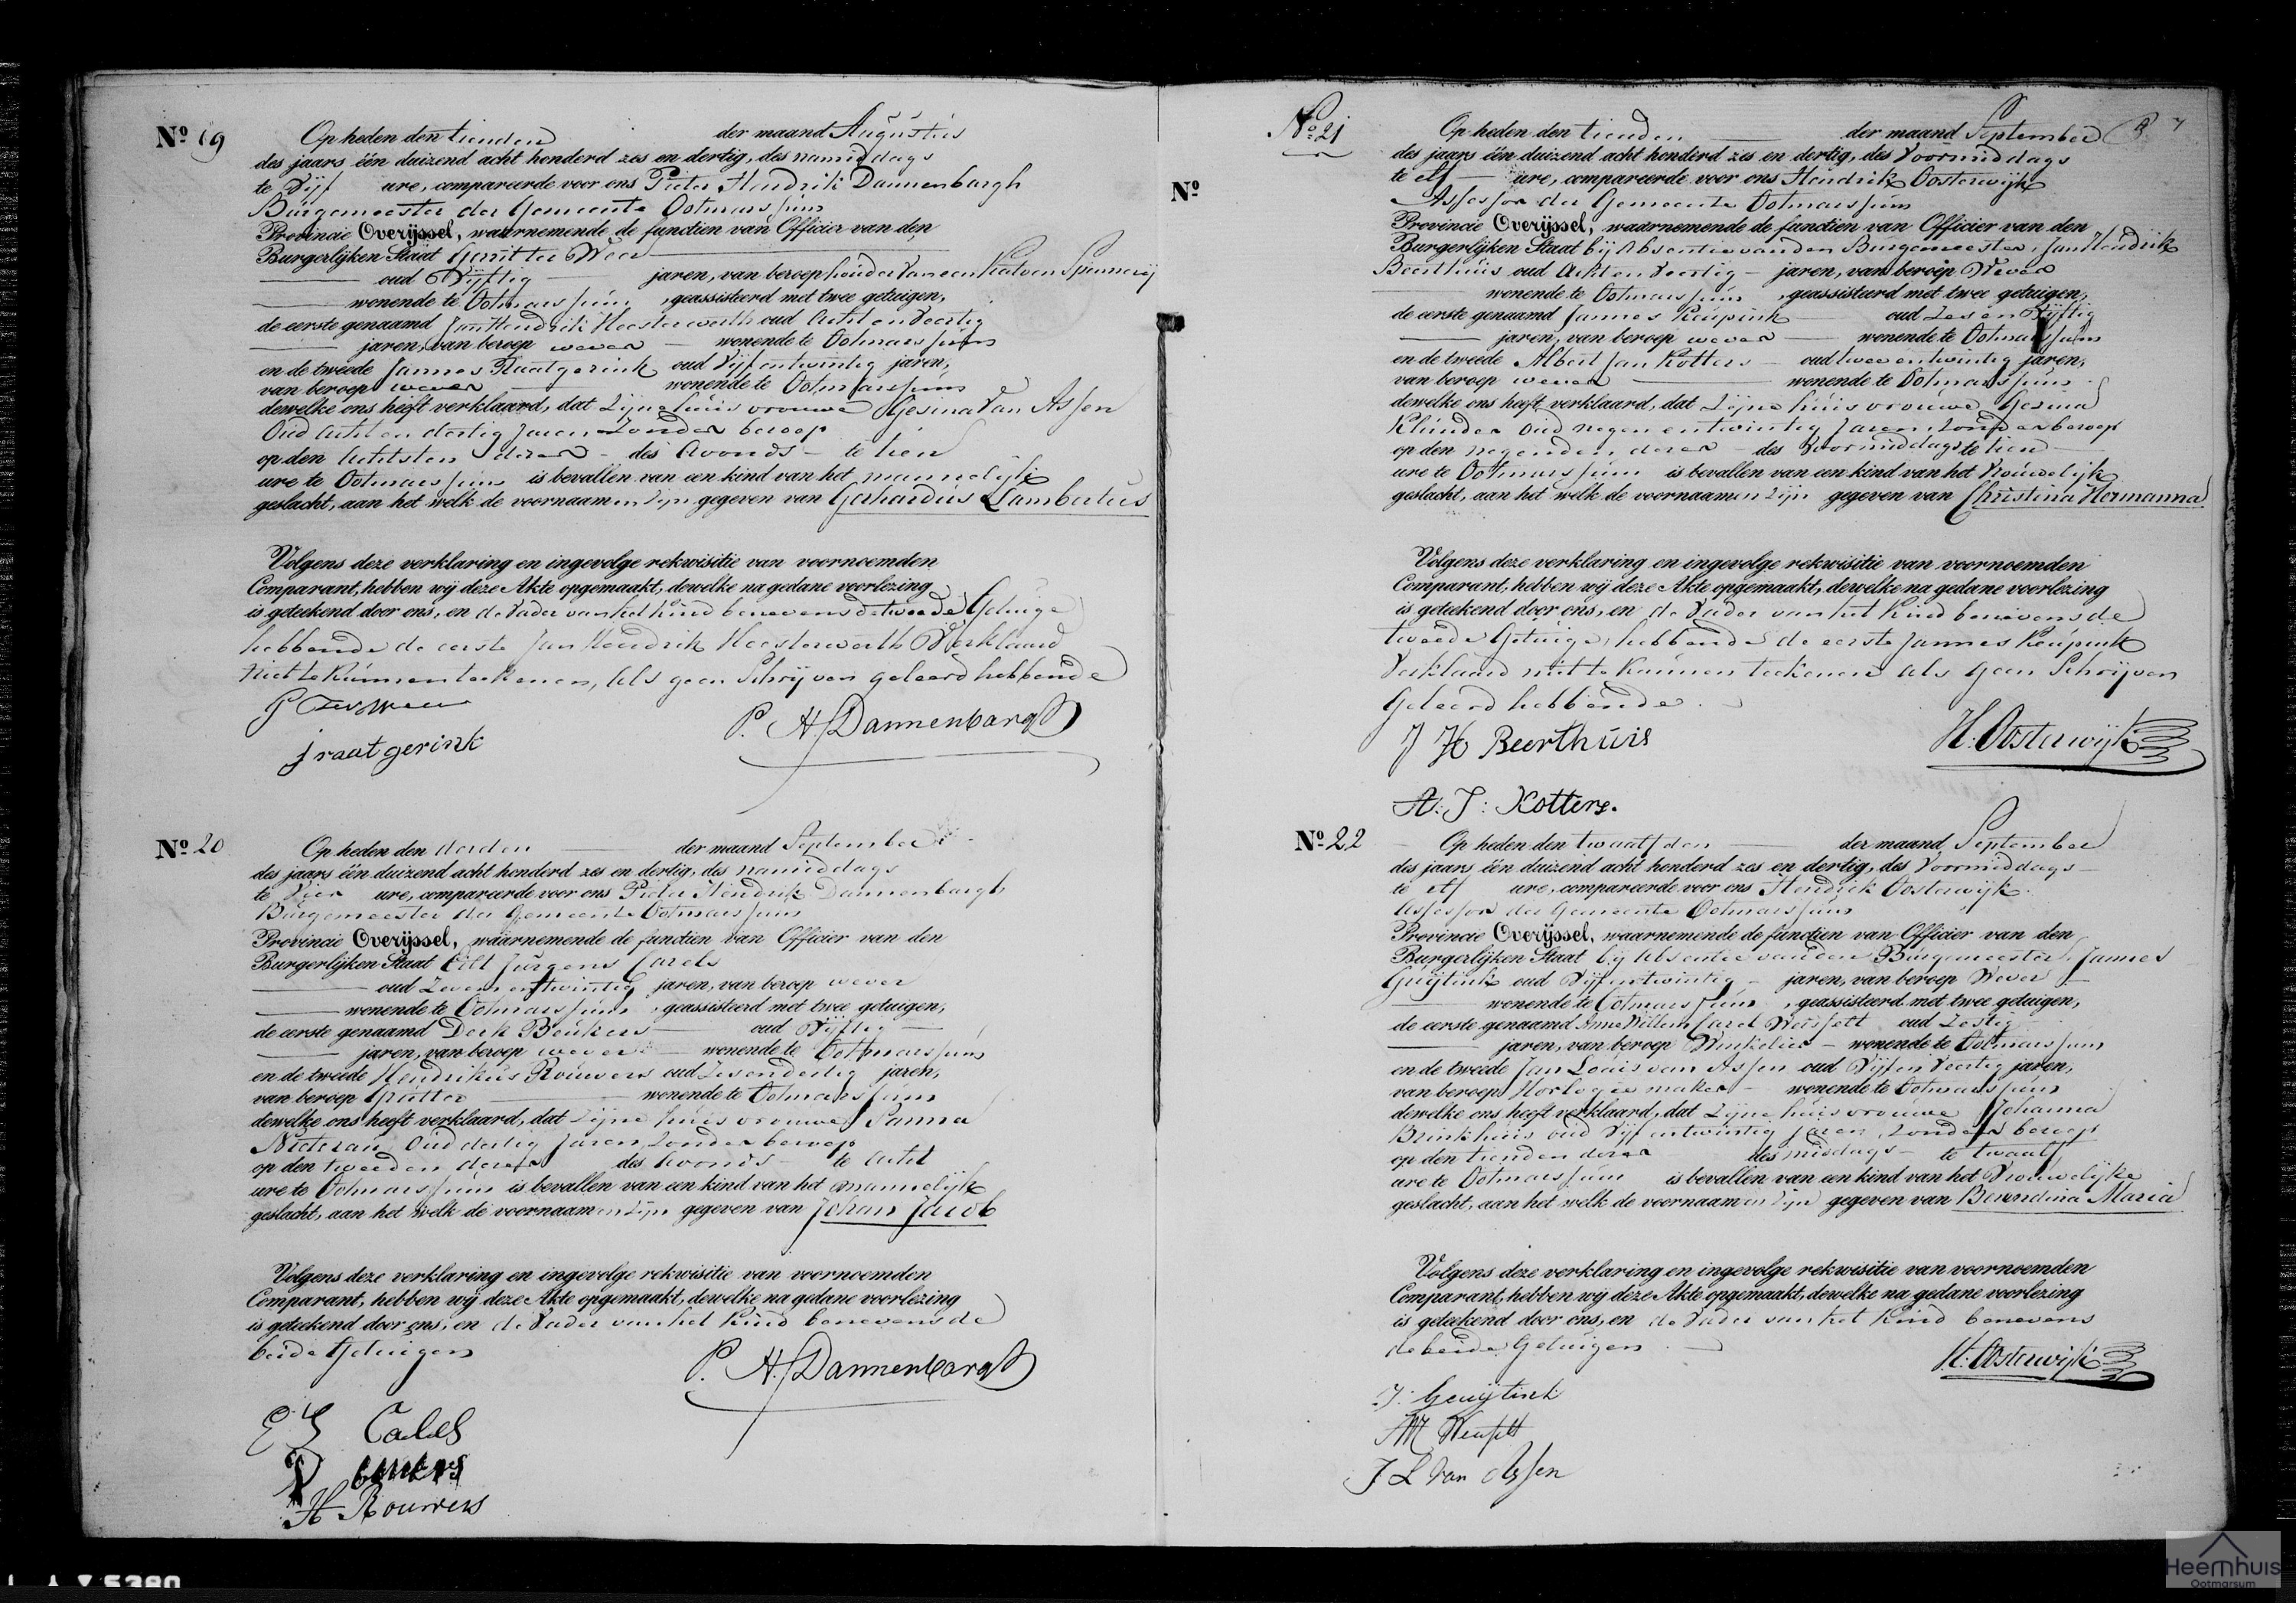 Nº 19 Op heden den tienden der maand Augustus
des jaars één duizend acht honderd zes en dertig, des namiddags
te Vijf ure, compareerde voor ons Pieter Hendrik Dannenbargh
Burgemeester der Gemeente Ootmarssum
Provincie Overijssel, waarnemende de functien van Officier van den
Burgerlijken Staat Gerrit ter Weer
oud Vijftig jaren, van beroep houder van een Katoen Spinnerij
wonende te Ootmarssum, geassisteerd met twee getuigen,
de eerste genaamd Jan Hendrik Heesterwerth oud Acht en Veertig
jaren, van beroep wever wonende te Ootmarssum
en de tweede Jannes Raatgerink oud Vijf entwintig jaren,
van beroep wever wonende te Ootmarssum
dewelke ons heeft verklaard, dat Zijne huisvrouwe Gesina Van Assen
Oud acht en dertig Jaren, Zonder beroep
op den Achtsten dezer des Avonds te tien
ure te Ootmarssum is bevallen van een kind van het mannelijk
geslacht, aan het welk de voornaamen zijn gegeven van Gerhardus Lambertus
Volgens deze verklaring en ingevolge rekwisitie van voornoemden
Comparant, hebben wij deze Akte opgemaakt, dewelke na gedane voorlezing
is geteekend door ons, en de Vader van het Kind benevens de tweede Getuige
hebbende de eerste Jan Hendrik Heesterwerth Verklaard
niet te Kunnen teekenen, Als geen Schrijven geleerd hebbende
G Ter Weer
P. H. Dannenbargh
j raatgerink
Nº 20 Op heden den derden der maand September
des jaars één duizend acht honderd zes en dertig, des namiddags
te Vier ure, compareerde voor ons Pieter Hendrik Dannenbargh
Burgemeester der Gemeente Ootmarssum
Provincie Overijssel, waarnemende de functien van Officier van den
Burgerlijken Staat Jurgens Carels
oud Zeven entwintig jaren, van beroep wever
wonende te Ootmarssum, geassisteerd met twee getuigen,
de eerste genaamd Derk Beukers oud Vijftig
jaren, van beroep wever wonende te Ootmarssum
en de tweede Hendrikus Rouwers oud Zes en dertig jaren,
van beroep wonende te Ootmarssum
dewelke ons heeft verklaard, dat Zijne huisvrouwe Sanna
Oud dertig Jaren, Zonder beroep
op den tweeden dezer des Avonds te Acht
ure te Ootmarssum is bevallen van een kind van het mannelijk
geslacht, aan het welk de voornaamen zijn gegeven van Johan Jacob
Volgens deze verklaring en ingevolge rekwisitie van voornoemden
Comparant, hebben wij deze Akte opgemaakt, dewelke na gedane voorlezing
is geteekend door ons, en de Vader van het Kind benevens de
beide Getuigen
P. H. Dannenbargh
E J Carels
D beukers
H Rouwers
Nº 21 Op heden den tienden der maand September
des jaars één duizend acht honderd zes en dertig, des Voormiddags
te elf ure, compareerde voor ons Hendrik Oosterwijk
Nº
Assessor der Gemeente Ootmarssum
Provincie Overijssel, waarnemende de functien van Officier van den
Burgerlijken Staat bij Absentie van den Burgemeester, Jan Hendrik
Beerthuis oud Acht en Veertig jaren, van beroep Wever
wonende te Ootmarssum, geassisteerd met twee getuigen,
de eerste genaamd Jannes Reupink oud Zes en Vijftig
jaren, van beroep wever wonende te Ootmarssum
en de tweede Albert Jan Kotters oud twee entwintig jaren,
van beroep wever wonende te Ootmarssum
dewelke ons heeft verklaard, dat Zijne huisvrouwe Gesina
Klunder Oud negen entwintig Jaren, Zonder beroep
op den negenden dezer des Voormiddags te tien
ure te Ootmarssum is bevallen van een kind van het Vrouwelijk
geslacht, aan het welk de voornaamen zijn gegeven van Christina Hermanna
Volgens deze verklaring en ingevolge rekwisitie van voornoemden
Comparant, hebben wij deze Akte opgemaakt, dewelke na gedane voorlezing
is geteekend door ons, en de Vader van het Kind benevens de
tweede Getuige, hebbende de eerste Jannes Reupink
Verklaard niet te Kunnen teekenen als geen Schrijven
Geleerd hebbende.
J H Beerthuis
H: Oosterwijk
A: J: Kotters.
Nº 22 Op heden den twaalfden der maand September
des jaars één duizend acht honderd zes en dertig, des Voormiddags
te elf ure, compareerde voor ons Hendrik Oosterwijk
Assessor der Gemeente Ootmarssum
Provincie Overijssel, waarnemende de functien van Officier van den
Burgerlijken Staat bij Absentie van den Burgemeester, Jannes
Gruijtink oud Vijf entwintig jaren, van beroep Wever
wonende te Ootmarssum, geassisteerd met twee getuigen,
de eerste genaamd Willem Carel oud Zestig
jaren, van beroep Winkelier wonende te Ootmarssum
en de tweede Jan Louis van Assen oud Vijf en Veertig jaren,
van beroep Horlogie maker wonende te Ootmarssum
dewelke ons heeft verklaard, dat Zijne huisvrouwe Johanna
Brinkhuis oud Vijf entwintig jaren, Zonder beroep
op den tienden dezer des middags te twaalf
ure te Ootmarssum is bevallen van een kind van het Vrouwelijke
geslacht, aan het welk de voornaamen zijn gegeven van Berendina Maria
Volgens deze verklaring en ingevolge rekwisitie van voornoemden
Comparant, hebben wij deze Akte opgemaakt, dewelke na gedane voorlezing
is geteekend door ons, en de Vader van het Kind benevens
de beide Getuigen.
H: Oosterwijk
J: Gruijtink
J L van Assen
Heemhuis
Ootmarsum